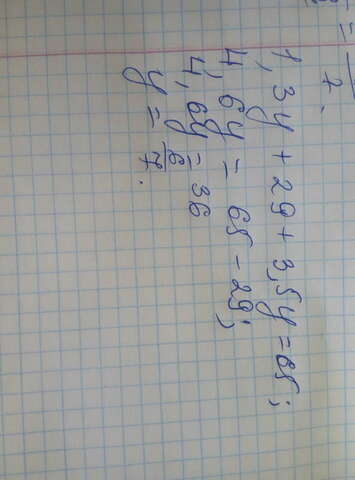 7.
1,3y + 29 + 3,5y = 65;
4,6y = 65 - 29;
4,6y = 36
y = 6/7.